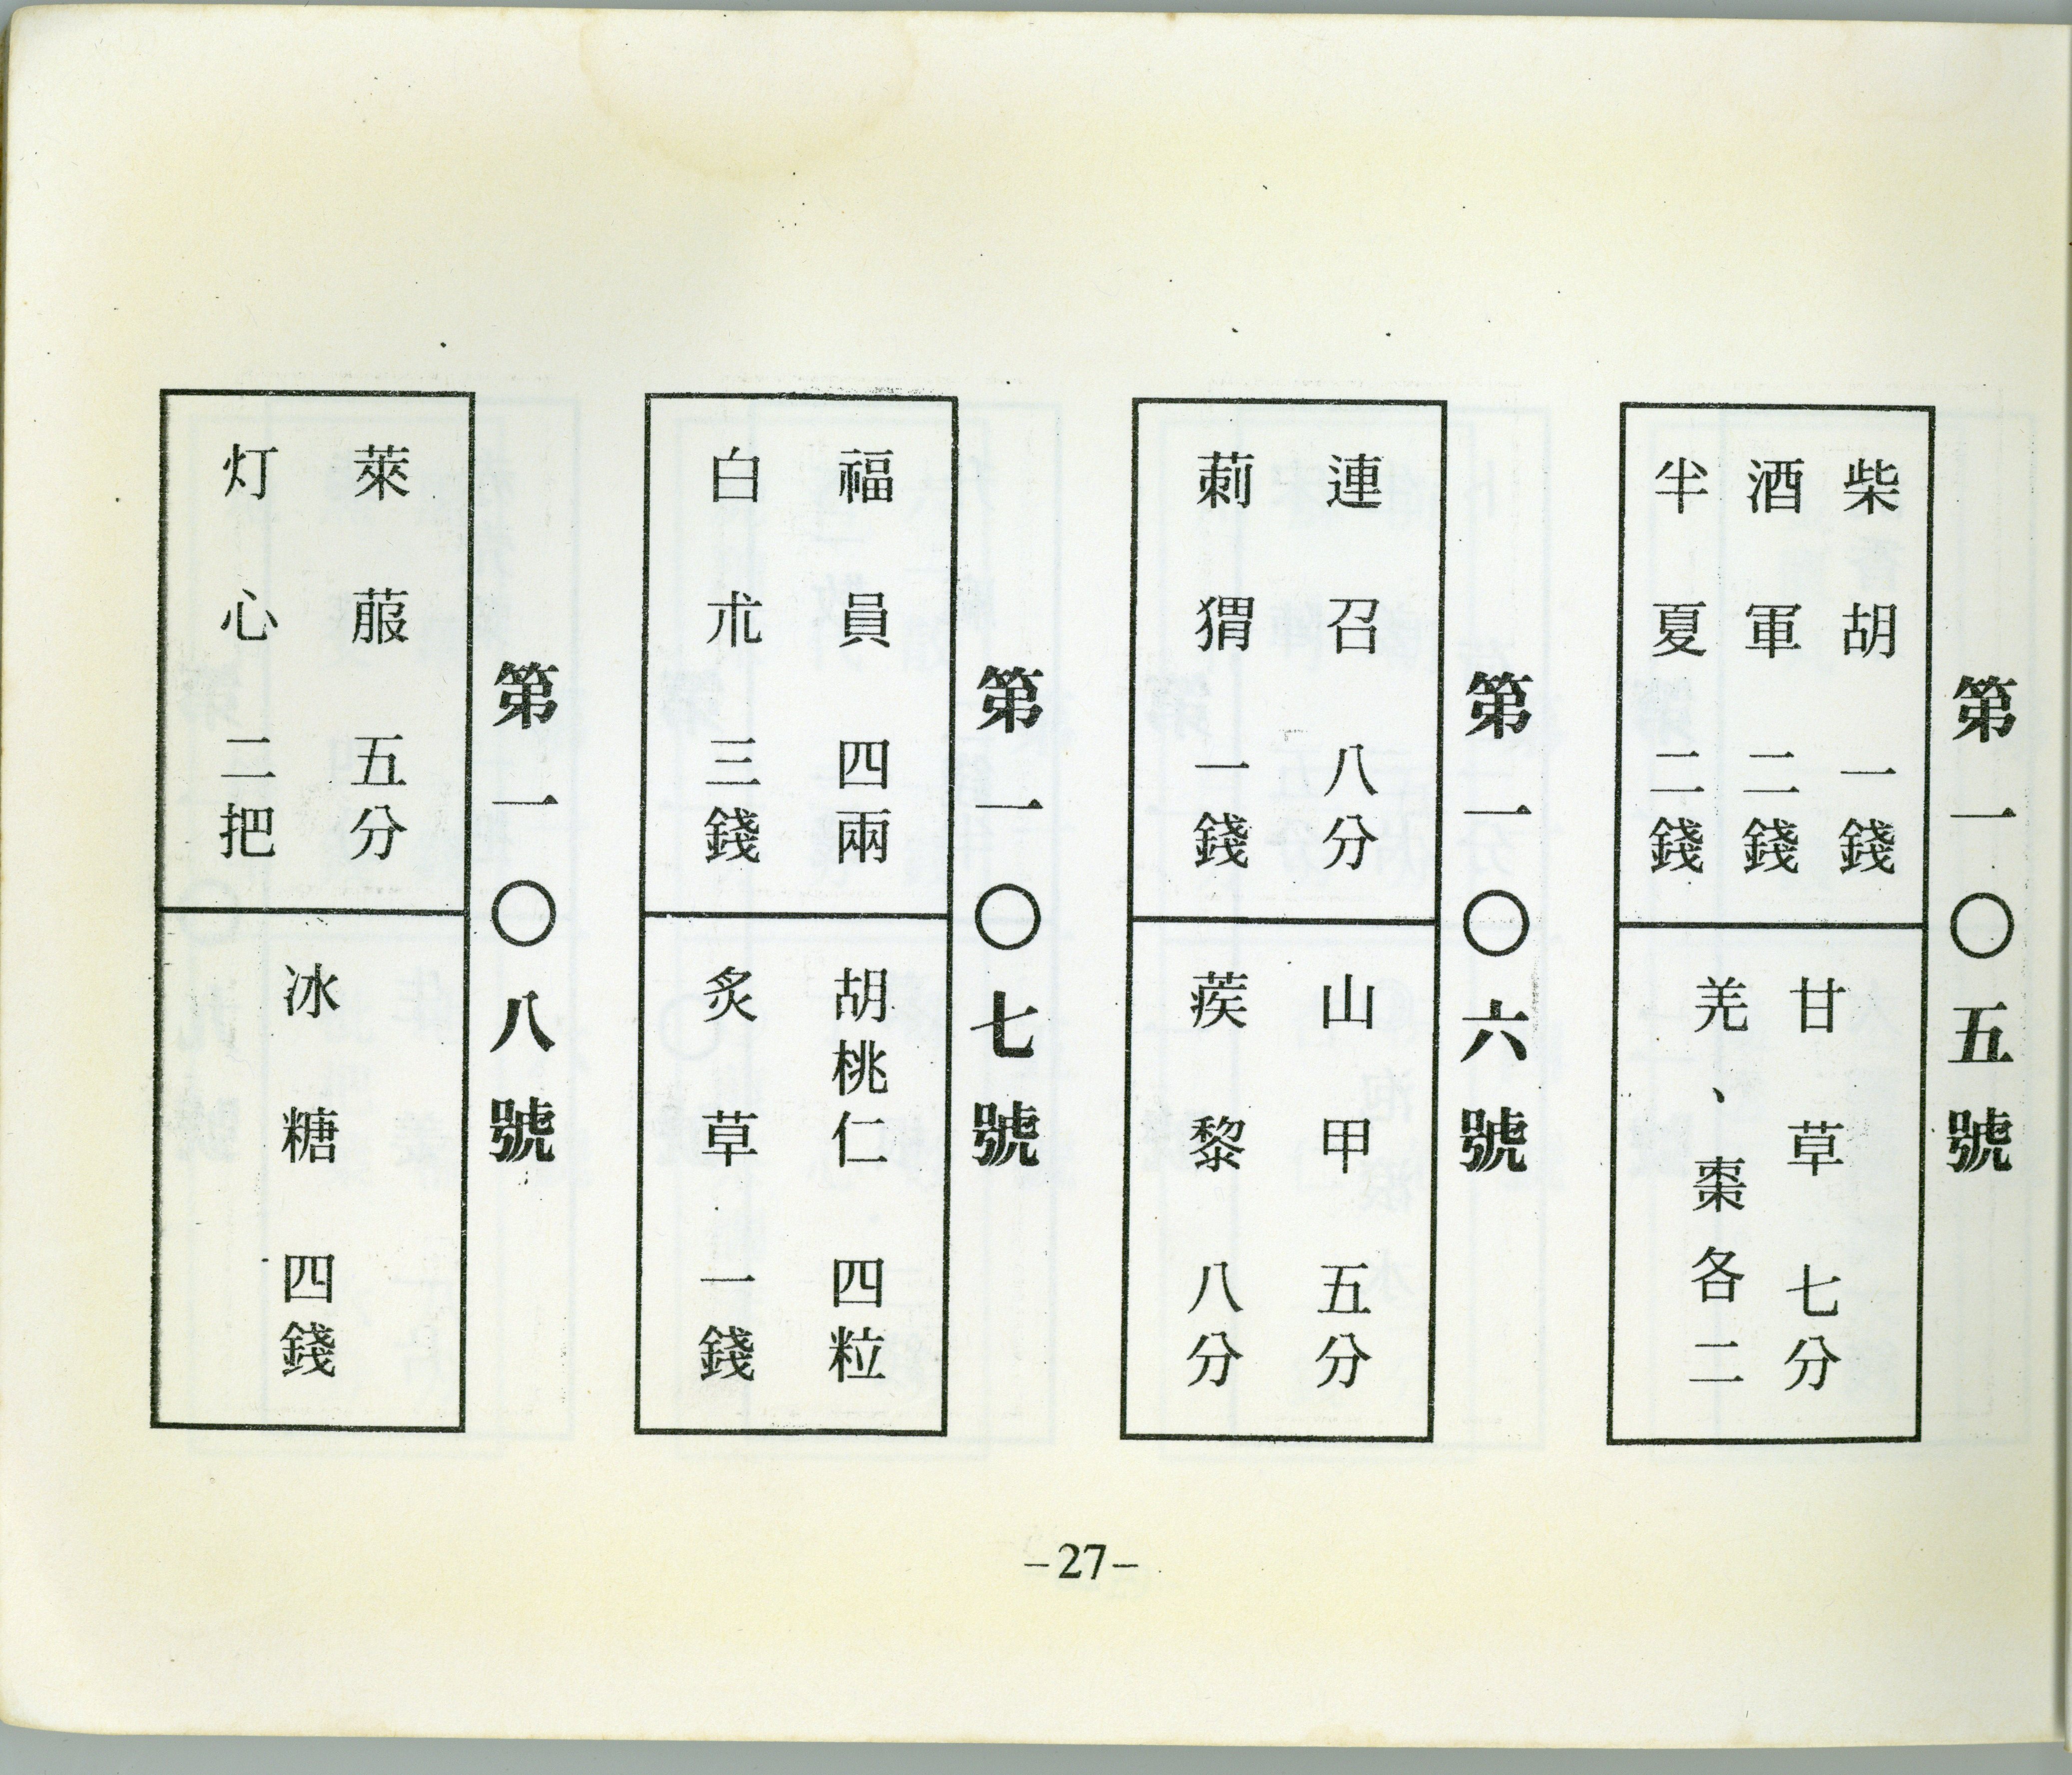 第一〇五號
柴胡 一錢
酒軍 二錢
半夏 二錢
甘草 七分
羌、棗各二
第一〇六號
連召 八分
莿猬 一錢
山甲 五分
蒺黎 八分
第一〇七號
福員 四兩
白朮 三錢
胡桃仁 四粒
炙草 一錢
第一〇八號
萊菔 五分
灯心 二把
冰糖 四錢
-27-